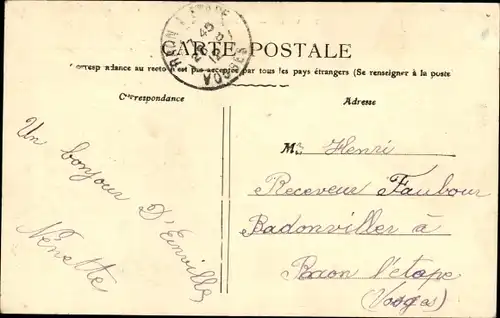 RAON L'ETAPE
VOSGES
CARTE POSTALE
Correspondance au recto n'est pas acceptée par tous les pays étrangers (Se renseigner à la poste
Correspondance
Adresse
Un bonjour D'Einville
Nénette
M Henri
Receveur Faubour
Badonviller à
Raon l'étape
(Vosges)